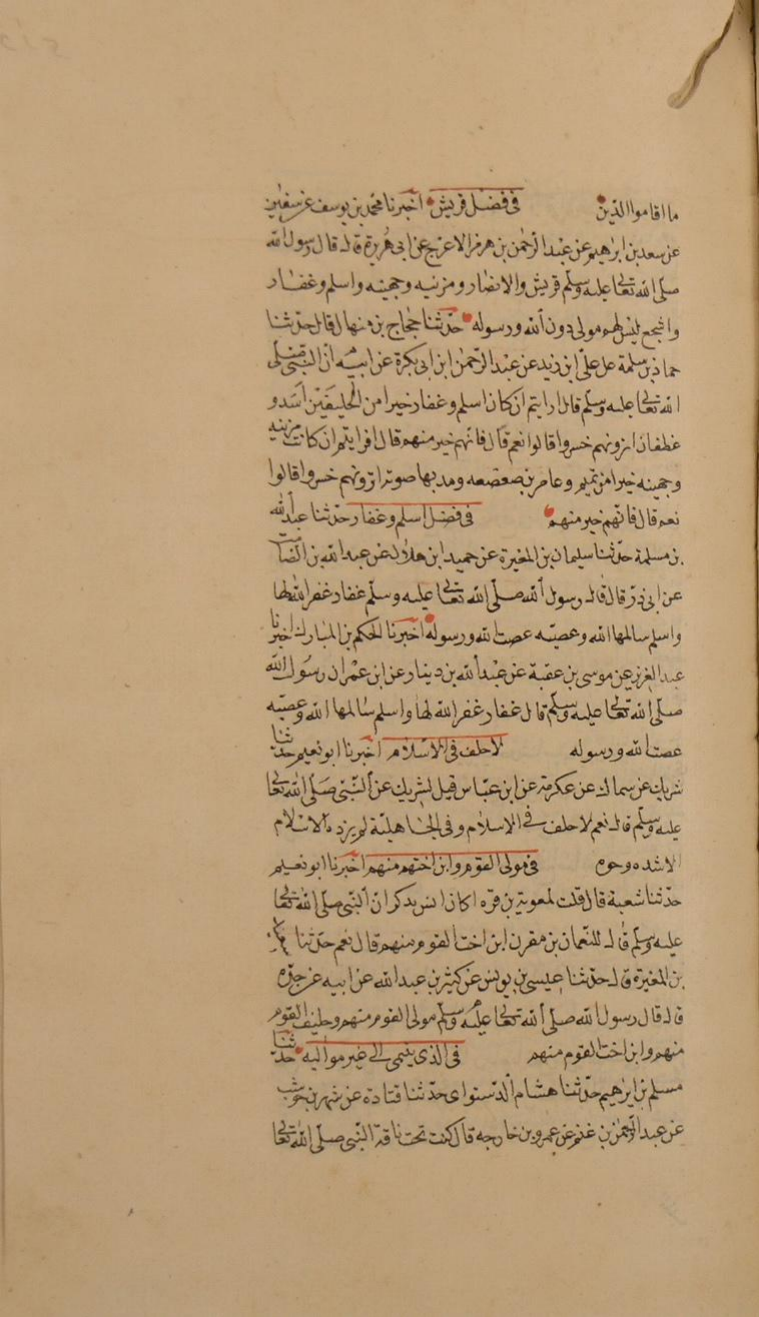 ما اقاموا الدين في فضل قريش اخبرنا محمد بن يوسف عن سفين
عن سعد بن ابرهيم عن عبد الرحمن بن هرمز الاعرج عن ابى هريرة قال قال رسول الله
صلى الله تعالى عليه وسلم قريش والانصار ومزنيه وجهينه واسلم وغفار
واشجع ليس لهم مولى دون الله ورسوله حدثنا حجاج بن منهال قال حدثنا
حماد بن سلمة عن على ابن زيد عن عبد الرحمن ابن ابى بكرة عن ابيه ان النبى صلى
الله تعالى عليه وسلم قال ارايتم ان كان اسلم وغفار خيرا من الحليفين اسد و
غطفان اترونهم خسروا قالوا نعم قال فانهم خير منهم قال افرايتم ان كانت مزينه
وجهينه خيرا من تميم وعامر بن صعصعه ومد بها صوته اترونهم خسروا قالوا
نعم قال فانهم خير منهم في فضل اسلم وغفار حدثنا عبد الله
بن مسلمة حدثنا سليمان بن المغيرة عن حميد ابن هلال عن عبد الله بن الصامت
عن ابى ذر قال قال رسول الله صلى الله تعالى عليه وسلم غفار غفر الله لها
واسلم سالمها الله وعصيه عصت الله ورسوله اخبرنا الحكم بن المبارك اخبرنا
عبد العزيز عن موسى بن عقبة عن عبد الله بن دينار عن ابن عمر ان رسول الله
صلى الله تعالى عليه وسلم قال غفار غفر الله لها واسلم سالمها الله وعصيه
عصت الله ورسوله لا حلف في الاسلام اخبرنا ابو نعيم حدثنا
شريك عن سماك عن عكرمة عن ابن عباس قيل لشريك عن النبى صلى الله تعالى
عليه وسلم قال نعم لا حلف في الاسلام وفى الجاهلية لم يزده الاسلام
الا شده وحوه في مولى القوم وابن اختهم منهم اخبرنا ابو نعيم
حدثنا شعبة قال قلت لمعوية بن قره اكان انس يذكر ان النبى صلى الله تعالى
عليه وسلم قال للنعمان بن مقرن ابن اخت القوم منهم قال نعم حدثنا
بن المغيرة قال حدثنا عيسى بن يونس عن كثير بن عبد الله عن ابيه عن جده
قال قال رسول الله صلى الله تعالى عليه وسلم مولى القوم منهم وحليف القوم
منهم وابن اخت القوم منهم في الذى ينتمى الى غير مواليه حدثنا
مسلم بن ابرهيم حدثنا هشام الدستواى حدثنا قتادة عن شهر بن حوشب
عن عبد الرحمن بن غنم عن عمرو بن خارجه قال كنت تحت ناقة النبى صلى الله تعالى